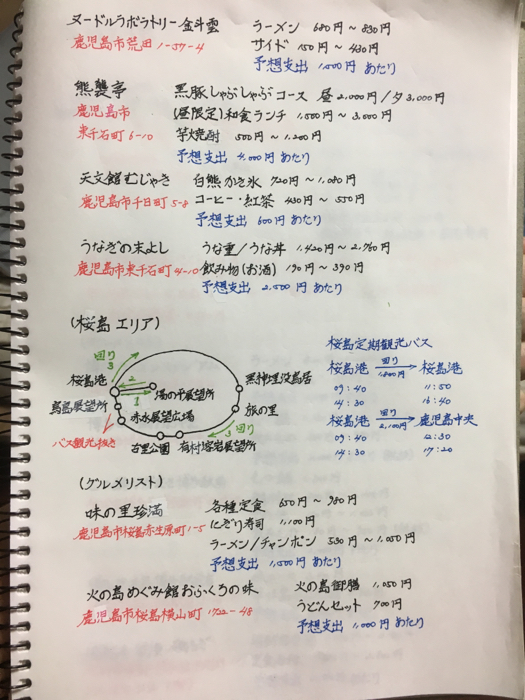 ヌードルラボラトリー金斗雲 ラーメン 680円〜830円
鹿児島市荒田1-57-4 サイド 150円〜430円
予想支出 1,500円あたり
熊襲亭 黒豚しゃぶしゃぶコース 昼2,000円/夕3,000円
鹿児島市 (昼限定)和食ランチ 1,500円〜3,000円
東千石町6-10 芋焼酎 500円〜1,200円
予想支出 4,000円あたり
天文館むじゃき 白熊かき氷 720円〜1,080円
鹿児島市千日町5-8 コーヒー・紅茶 430円〜550円
予想支出 600円あたり
うなぎの末よし うな重/うな丼 1,420円〜2,760円
鹿児島市東千石町4-10 飲み物(お酒) 190円〜390円
予想支出 2,500円あたり
(桜島エリア)
回り
3
桜島港
2
1
湯の平展望所
黒神埋没鳥居
烏島展望所
赤水展望広場
旅の里
バス観光抜き
古里公園
有村溶岩展望所
3 回り
桜島定期観光バス
桜島港 回り 1,800円 → 桜島港
09:40 11:50
14:30 16:40
桜島港 回り 2,200円 → 鹿児島中央
09:40 12:30
14:30 17:20
(グルメリスト)
味の里珍満 各種定食 650円〜950円
鹿児島市桜島赤生原町1-5 にぎり寿司 1,100円
ラーメン/チャンポン 530円〜1,050円
予想支出 1,500円あたり
火の島めぐみ館おふくろの味 火の島御膳 1,050円
鹿児島市桜島横山町1722-48 うどんセット 700円
予想支出 1,000円あたり